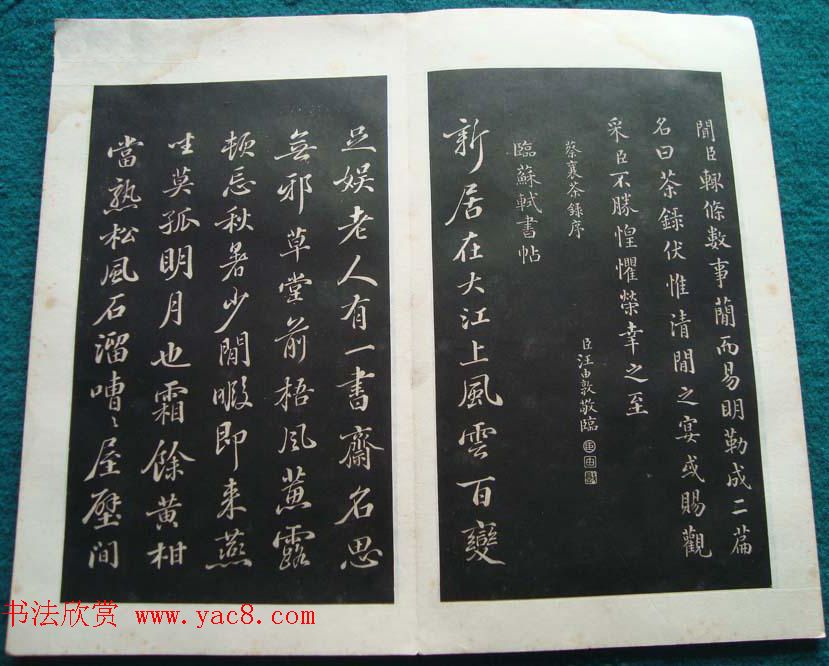 聞臣輒條數事蕳而易明勒成二篇
名曰茶錄伏惟清閒之宴或賜觀
采臣不勝惶懼榮幸之至
蔡襄茶錄序
臣汪由敦敬臨
臨蘇軾書帖
新居在大江上風雲百變
足娛老人有一書齋名思
無邪草堂前梧風蕙露
頓忘秋暑少閒暇即来燕
坐莫孤明月也霜餘黄柑
當熟松風石溜嘈〻屋壁间
书法欣赏 www.yac8.com